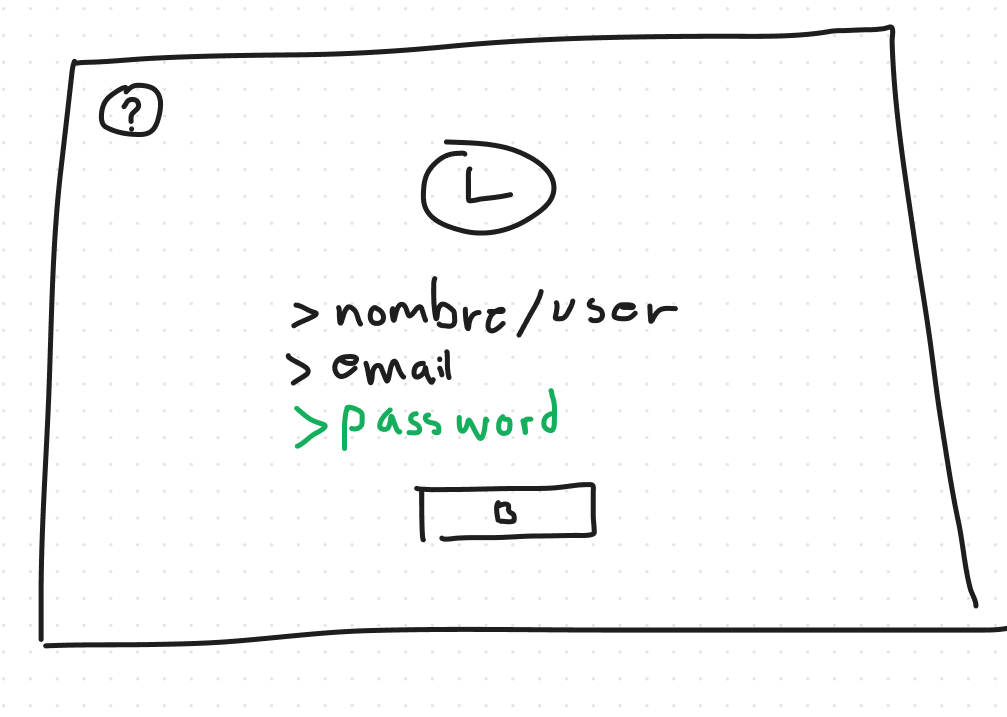 ?
L
> nombre/user
> email
> password
B